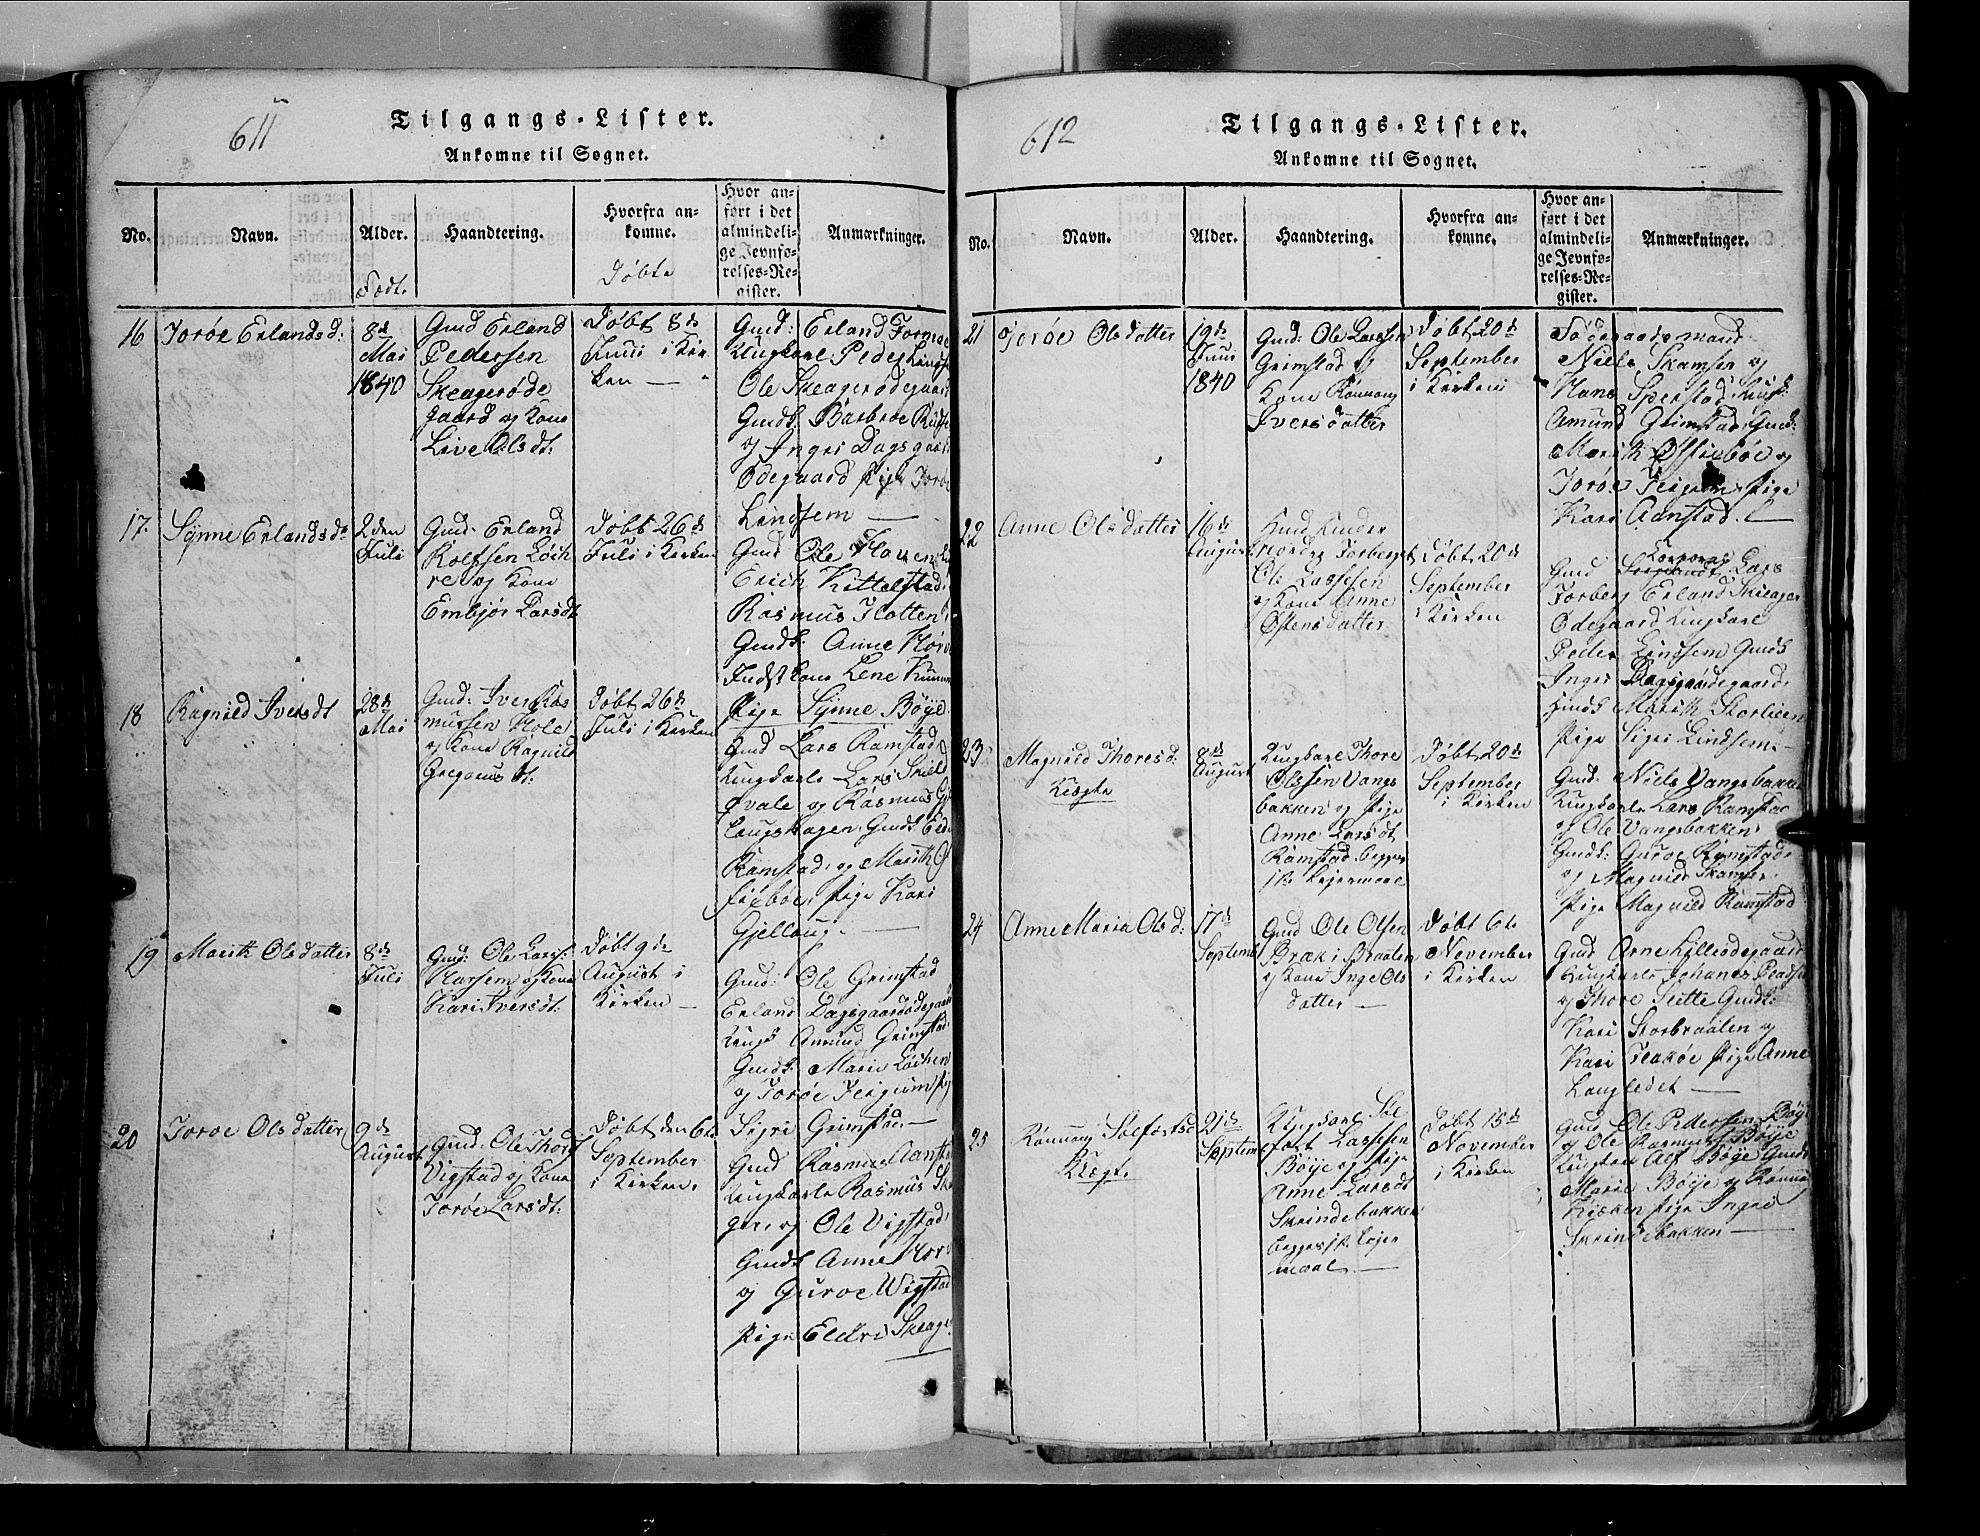 611
Tilgangs-Lister.
Ankomne til Sognet.
No.
Navn.
Alder.
Født.
Haandtering.
Hvorfra an-
komne.
Døbte
Hvor an-
ført i det
almindeli-
ge Jevnfø-
relses-Re-
gister.
Anmærkninger.
16
Joröe Erlandsd:
8de
Mai
1840
Gmd Erland
Pedersen
Skeagerøde
gaard og Kone
Live Olsdt:
Døbt 8de
Juni i Kir
ken —
Gmd: Erland
Ungkarl Peder
Ole Skeagerødegaard
Gmdk: Barbroe
og Ingri Dagsgaard
Ødegaard Pige Joröe
Lindsem —
17.
Synne Erlandsdt
2den
Juli
Gmd: Erland
Rolfsen Løch
re og Kone
Embjør Larsdt
Døbt 26de
Juli i Kirken
Gmd Ole
Erich Kittelstad
Rasmus Flatten
Gmdk: Anne
Indst Kone Lene
Pige Synne Böye
18
Ragnild Iversdt
28de
Mai
Gmd: Iver Ras
mussen Hole
og Kone Ragnild
Gregorius dt:
Døbt 26de
Juli i Kirken
Gmd Lars Ramstad
Ungkarle Lars
qvale og Rasmus
Gmdk:
Ramstad og Marith
Pige Kari
Gjellaug. —
19
Marith Olsdatter
8de
Juli
Gmd: Ole Lars:
og Kone
Kari Iversdt:
Døbt 9de
August i
Kirken —
Gmd: Ole Grimstad
Erland Dagsgaardødegaard
Ungk Amund Grimstad
Gmdk: Marie Løchen
og Joröe Teigum Pige
Sigri Grimstad —
20
Joroe Olsdatter
9de
August
Gmd: Ole Thord
Vigstad og Kone
Joröe Larsdt:
Døbt den 6te
September
i Kirken.
Gmd Rasmus Aanstad
Ungkarle Rasmus
og Ole Vigstad
Gmdk Anne
og Guroe Wigstad
Pige Eldri
612
Tilgangs-Lister.
Ankomne til Sognet.
No.
Navn.
Alder.
Haandtering.
Hvorfra an-
komne.
Hvor an-
ført i det
almindeli-
ge Jevnfø-
relses-Re-
gister.
Anmærkninger.
21
Joröe Olsdatter
19de
Juni
1840
Gmd: Ole Larssen
Grimstad og
Kone Rönnoug
Iversdatter
Døbt 20de
September
i Kirken
Födegaardsmand
Niels Skamsen og
Hans Sperstad Ungk:
Amund Grimstad Gmdk:
Marith og
Joröe Teigum Pige
Kari Aanstad. —
22
Anne Olsdatter
16de
August
Ole Larssen
og Kone Anne
Østensdatter
Døbt 20de
September
i Kirken
Gmd Corporal Lars
Forberg Erland Skeager
Ødegaard Ungkarl
Peder Lindsem Gmdk
Ingri Dagsgaardegaard
Gmdk Marith Storlieen
Pige Sigri Lindsem —
23
Magnild Thoresd:
Uægte
8de
August
Ungkarl Thore
Olssen Vangs
bakken og Pige
Anne Larsdt
Ramstad begges
1ste Lejermaal
Døbt 20de
September
i Kirken
Gmd: Niels Vangsbakken
Ungkarle Lars Ramstad
og Ole Vangsbakken
Gmdk: Guroe Ramstad
og Magnild Skamser
Pige Magnild Ramstad
24
Anne Maria Olsd:
17de
September
Gmd Ole Olsen
Bræk i Braaten
og Kone Inge Ols
datter —
Døbt 6te
November
i Kirken
Gmd Arne Lilleødegaard
Ungkarle Johanes
og Thore Gmdk:
Kari Storbraaten og
Kari Pige Anne
Langledet —
25
Rönnoug Solfestsd
Uægte.
21de
September
Ungkarl Sol
fest Larssen
Böye og Pige
Anne Larsdt
Skrindsbakken
begges 1ste Lejer
maal. —
Døbt 15de
November
i Kirken
Gmd Ole Pedersen Böye
og Ole Rasmus Böye
Ungkarl Alf Böye Gmdk
Marie Böye og Rönnoug
Pige Ingri
Skrindsbakken —